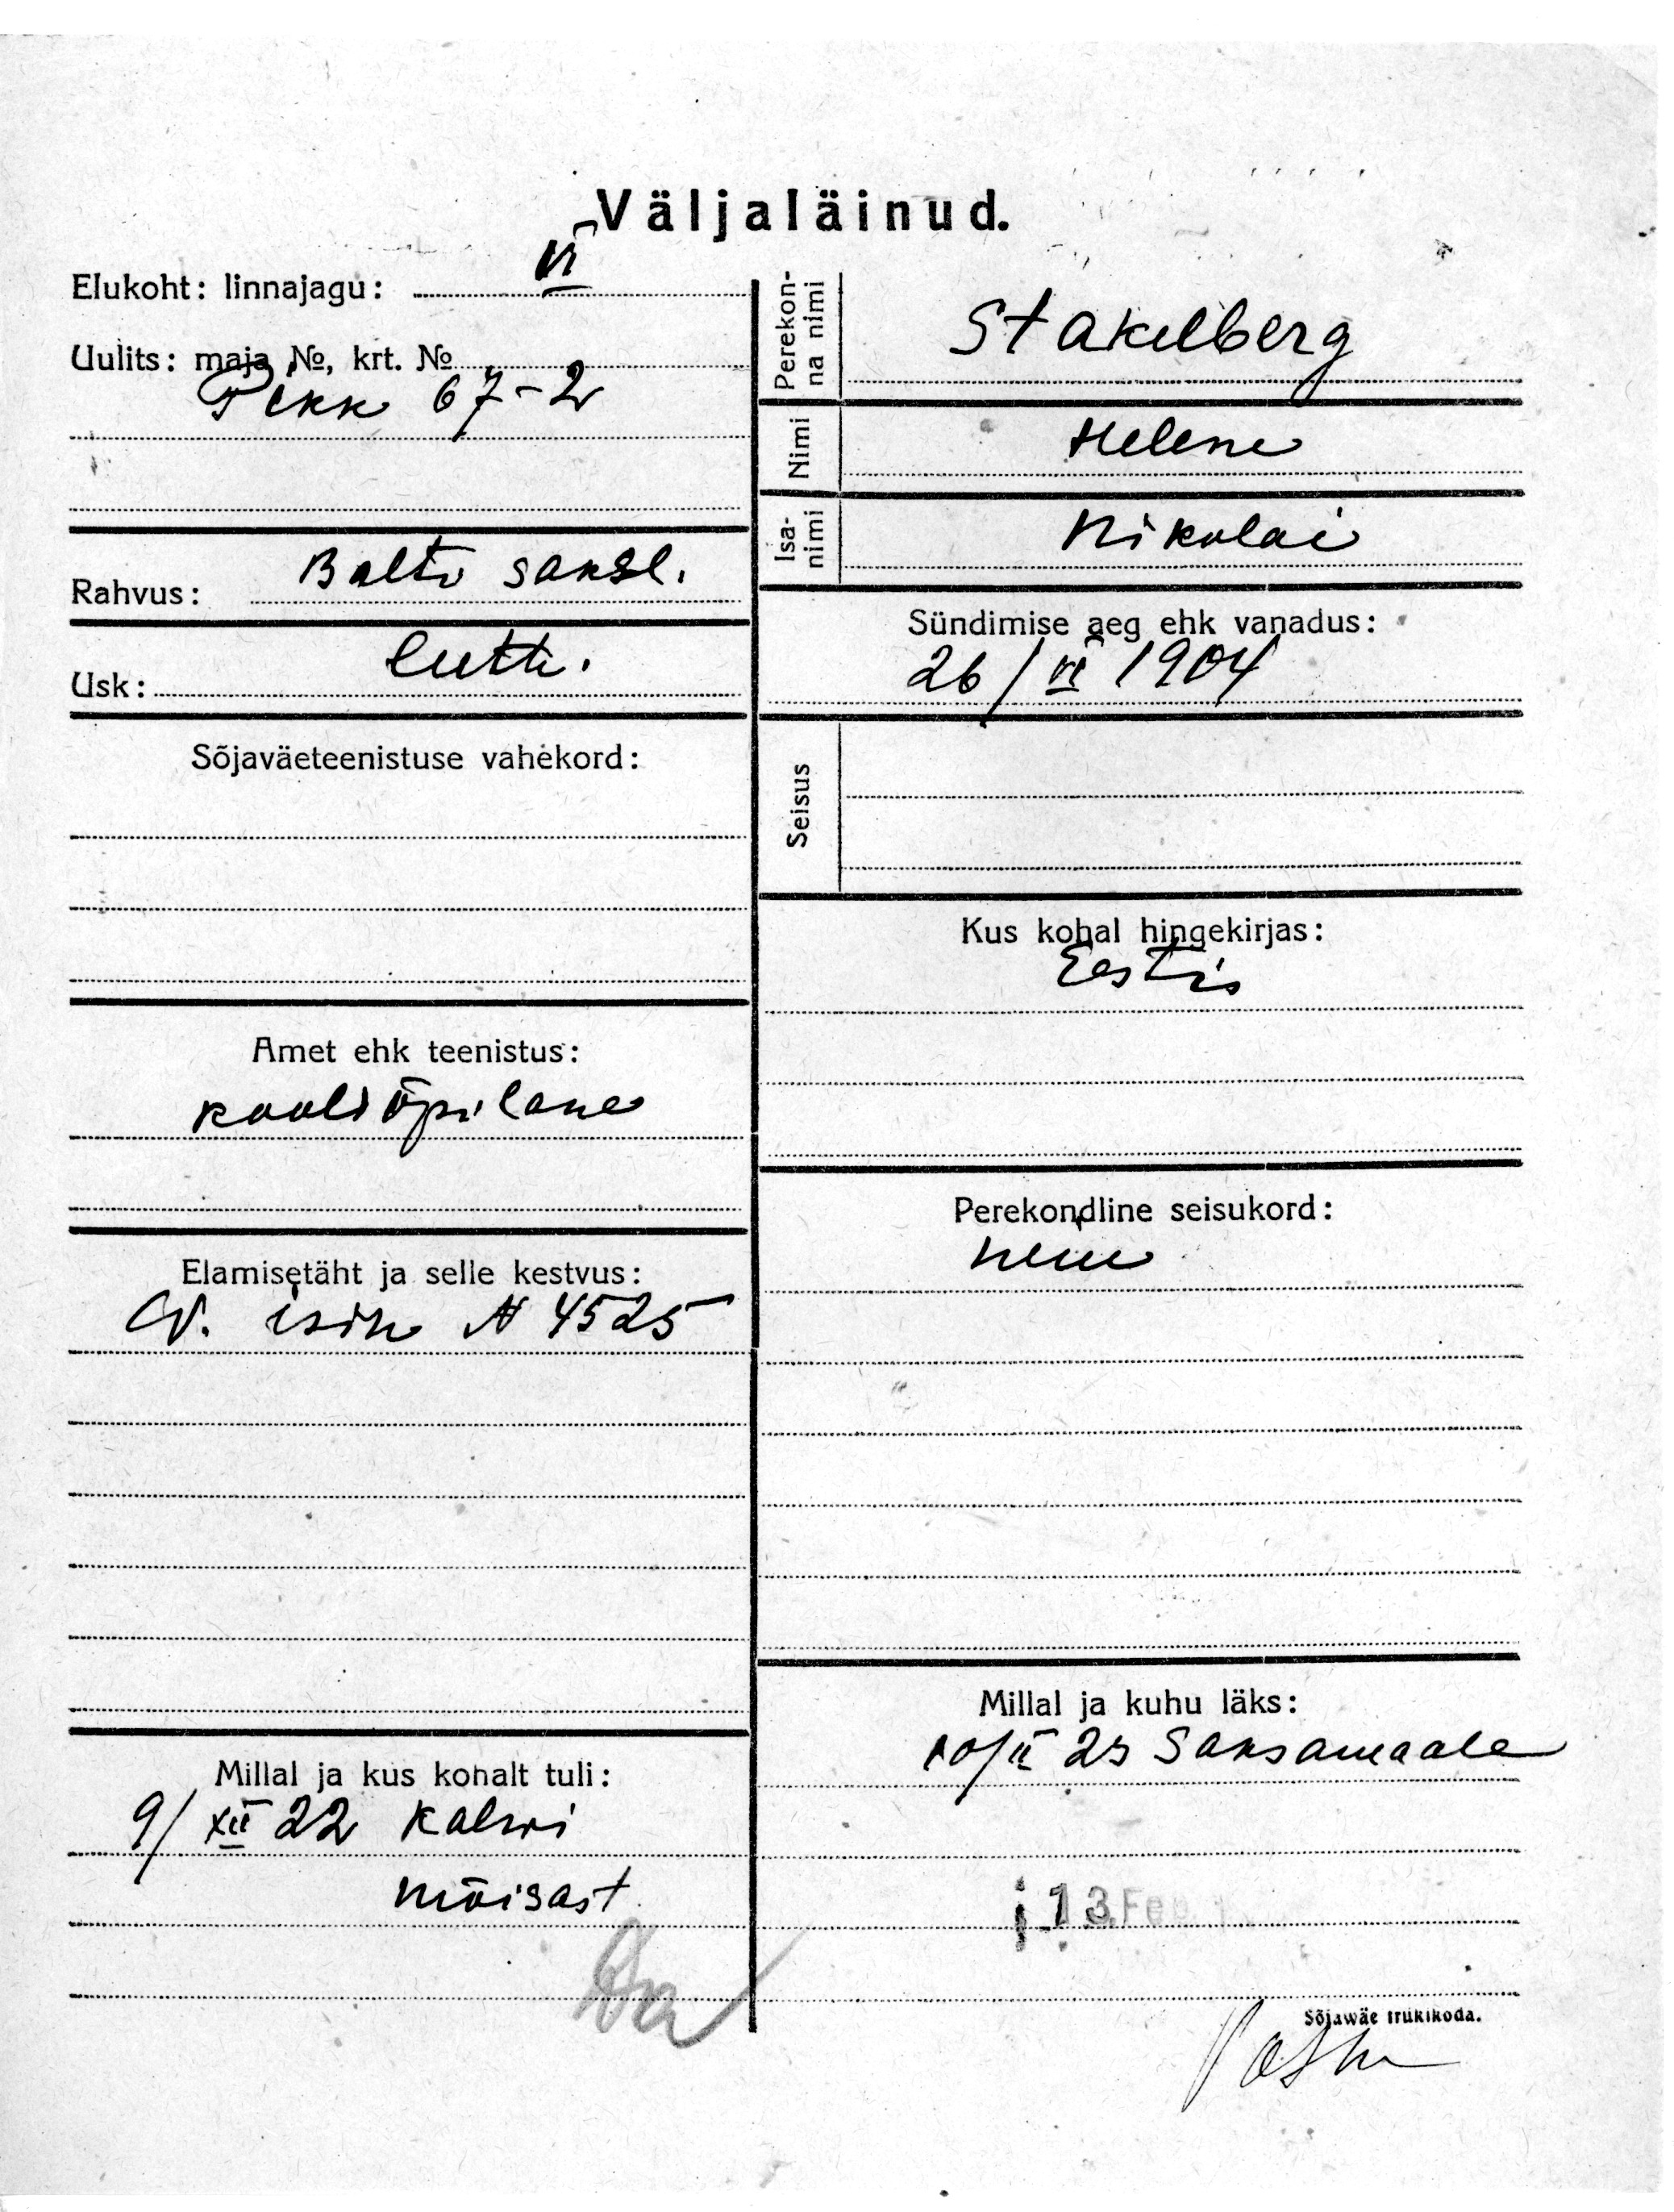 Väljaläinud.
Elukoht: linnajagu: VI
Uulits: maja №, krt. №
Pikk 67-2
Rahvus: Balti saksl.
Usk: luth.
Sõjaväeteenistuse vahekord:
Amet ehk teenistus:
kooliõpilane
Elamisetäht ja selle kestvus:
isik № 4525
Millal ja kus kohalt tuli:
9/XII 22 Kalvi
mõisast
Perekon-
na nimi
Stakelberg
Nimi
Helene
Isa-
nimi
Nikolai
Sündimise aeg ehk vanadus:
26/VI 1904
Seisus
Kus kohal hingekirjas:
Eestis
Perekondline seisukord:
neiu
Millal ja kuhu läks:
10/II 23 Saksamaale
13. Feb.
Sõjawäe trükikoda.